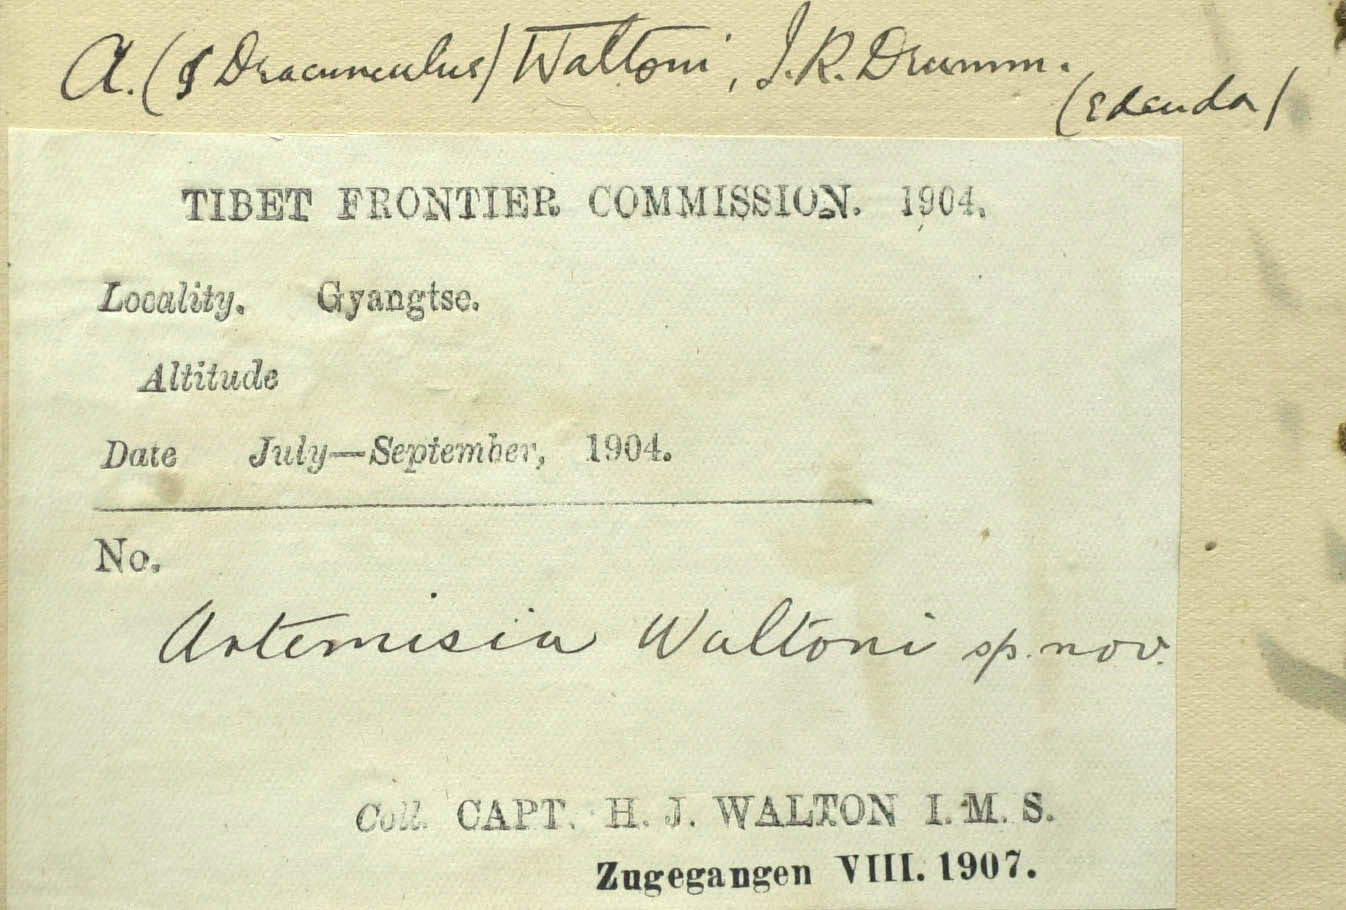 A. (§ Dracunculus) Waltoni, J. R. Drumm.
(edenda)
TIBET FRONTIER COMMISSION. 1904.
Locality. Gyangtse.
Altitude
Date July—September, 1904.
No.
Artemisia Waltoni sp. nov.
Coll. CAPT. H. J. WALTON I. M. S.
Zugegangen VIII. 1907.